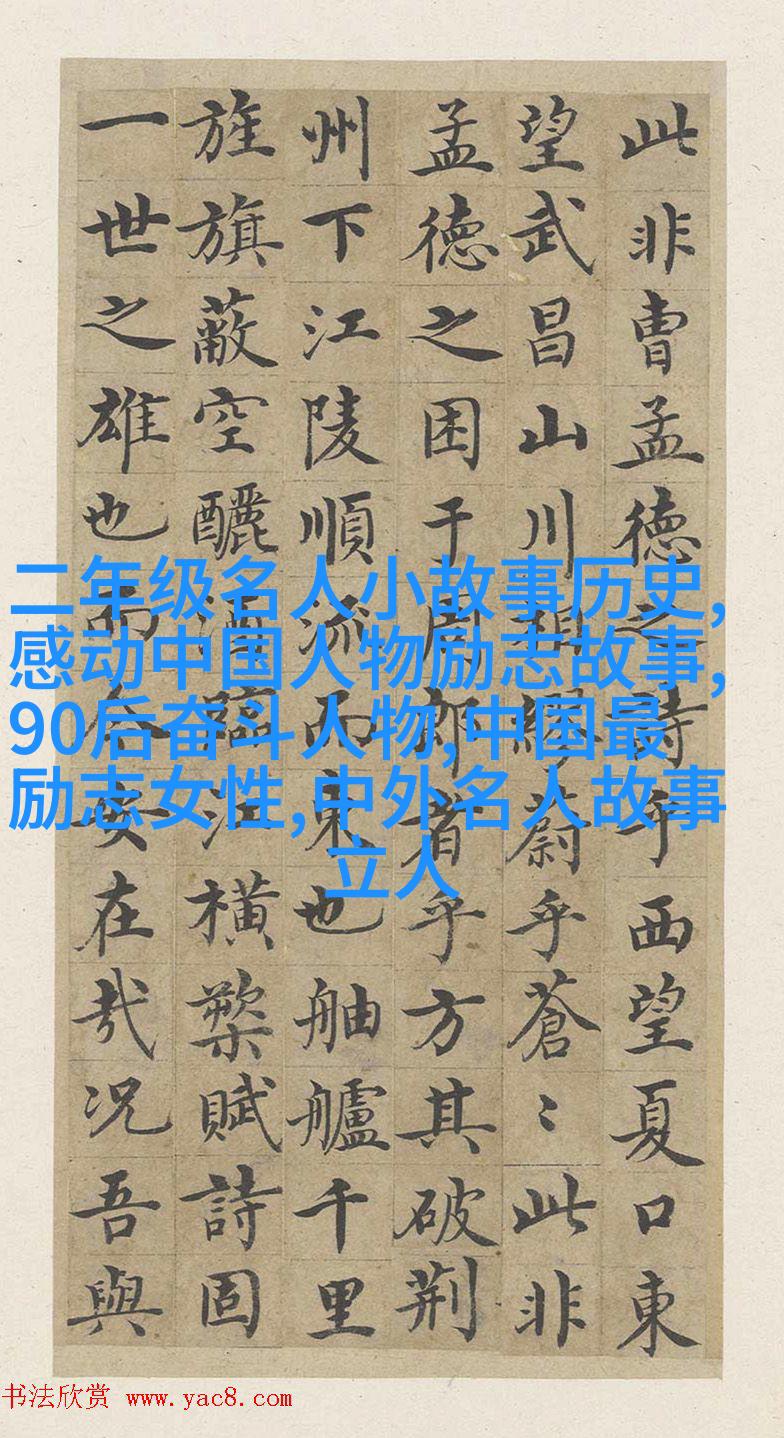 此非曹孟德之詩乎西望夏口東
望武昌山川相繆蔚乎蒼〻此非
孟德之困于周郎者乎方其破荊
州下江陵順流而東也舳艫千里
旌旗蔽空釃酒臨江橫槊賦詩固
一世之雄也而今安在哉况吾與
二年级名人小故事历史,
感动中国人物励志故事,
90后奋斗人物,中国最
励志女性,中外名人故事
立人
书法欣赏 www.yac8.com